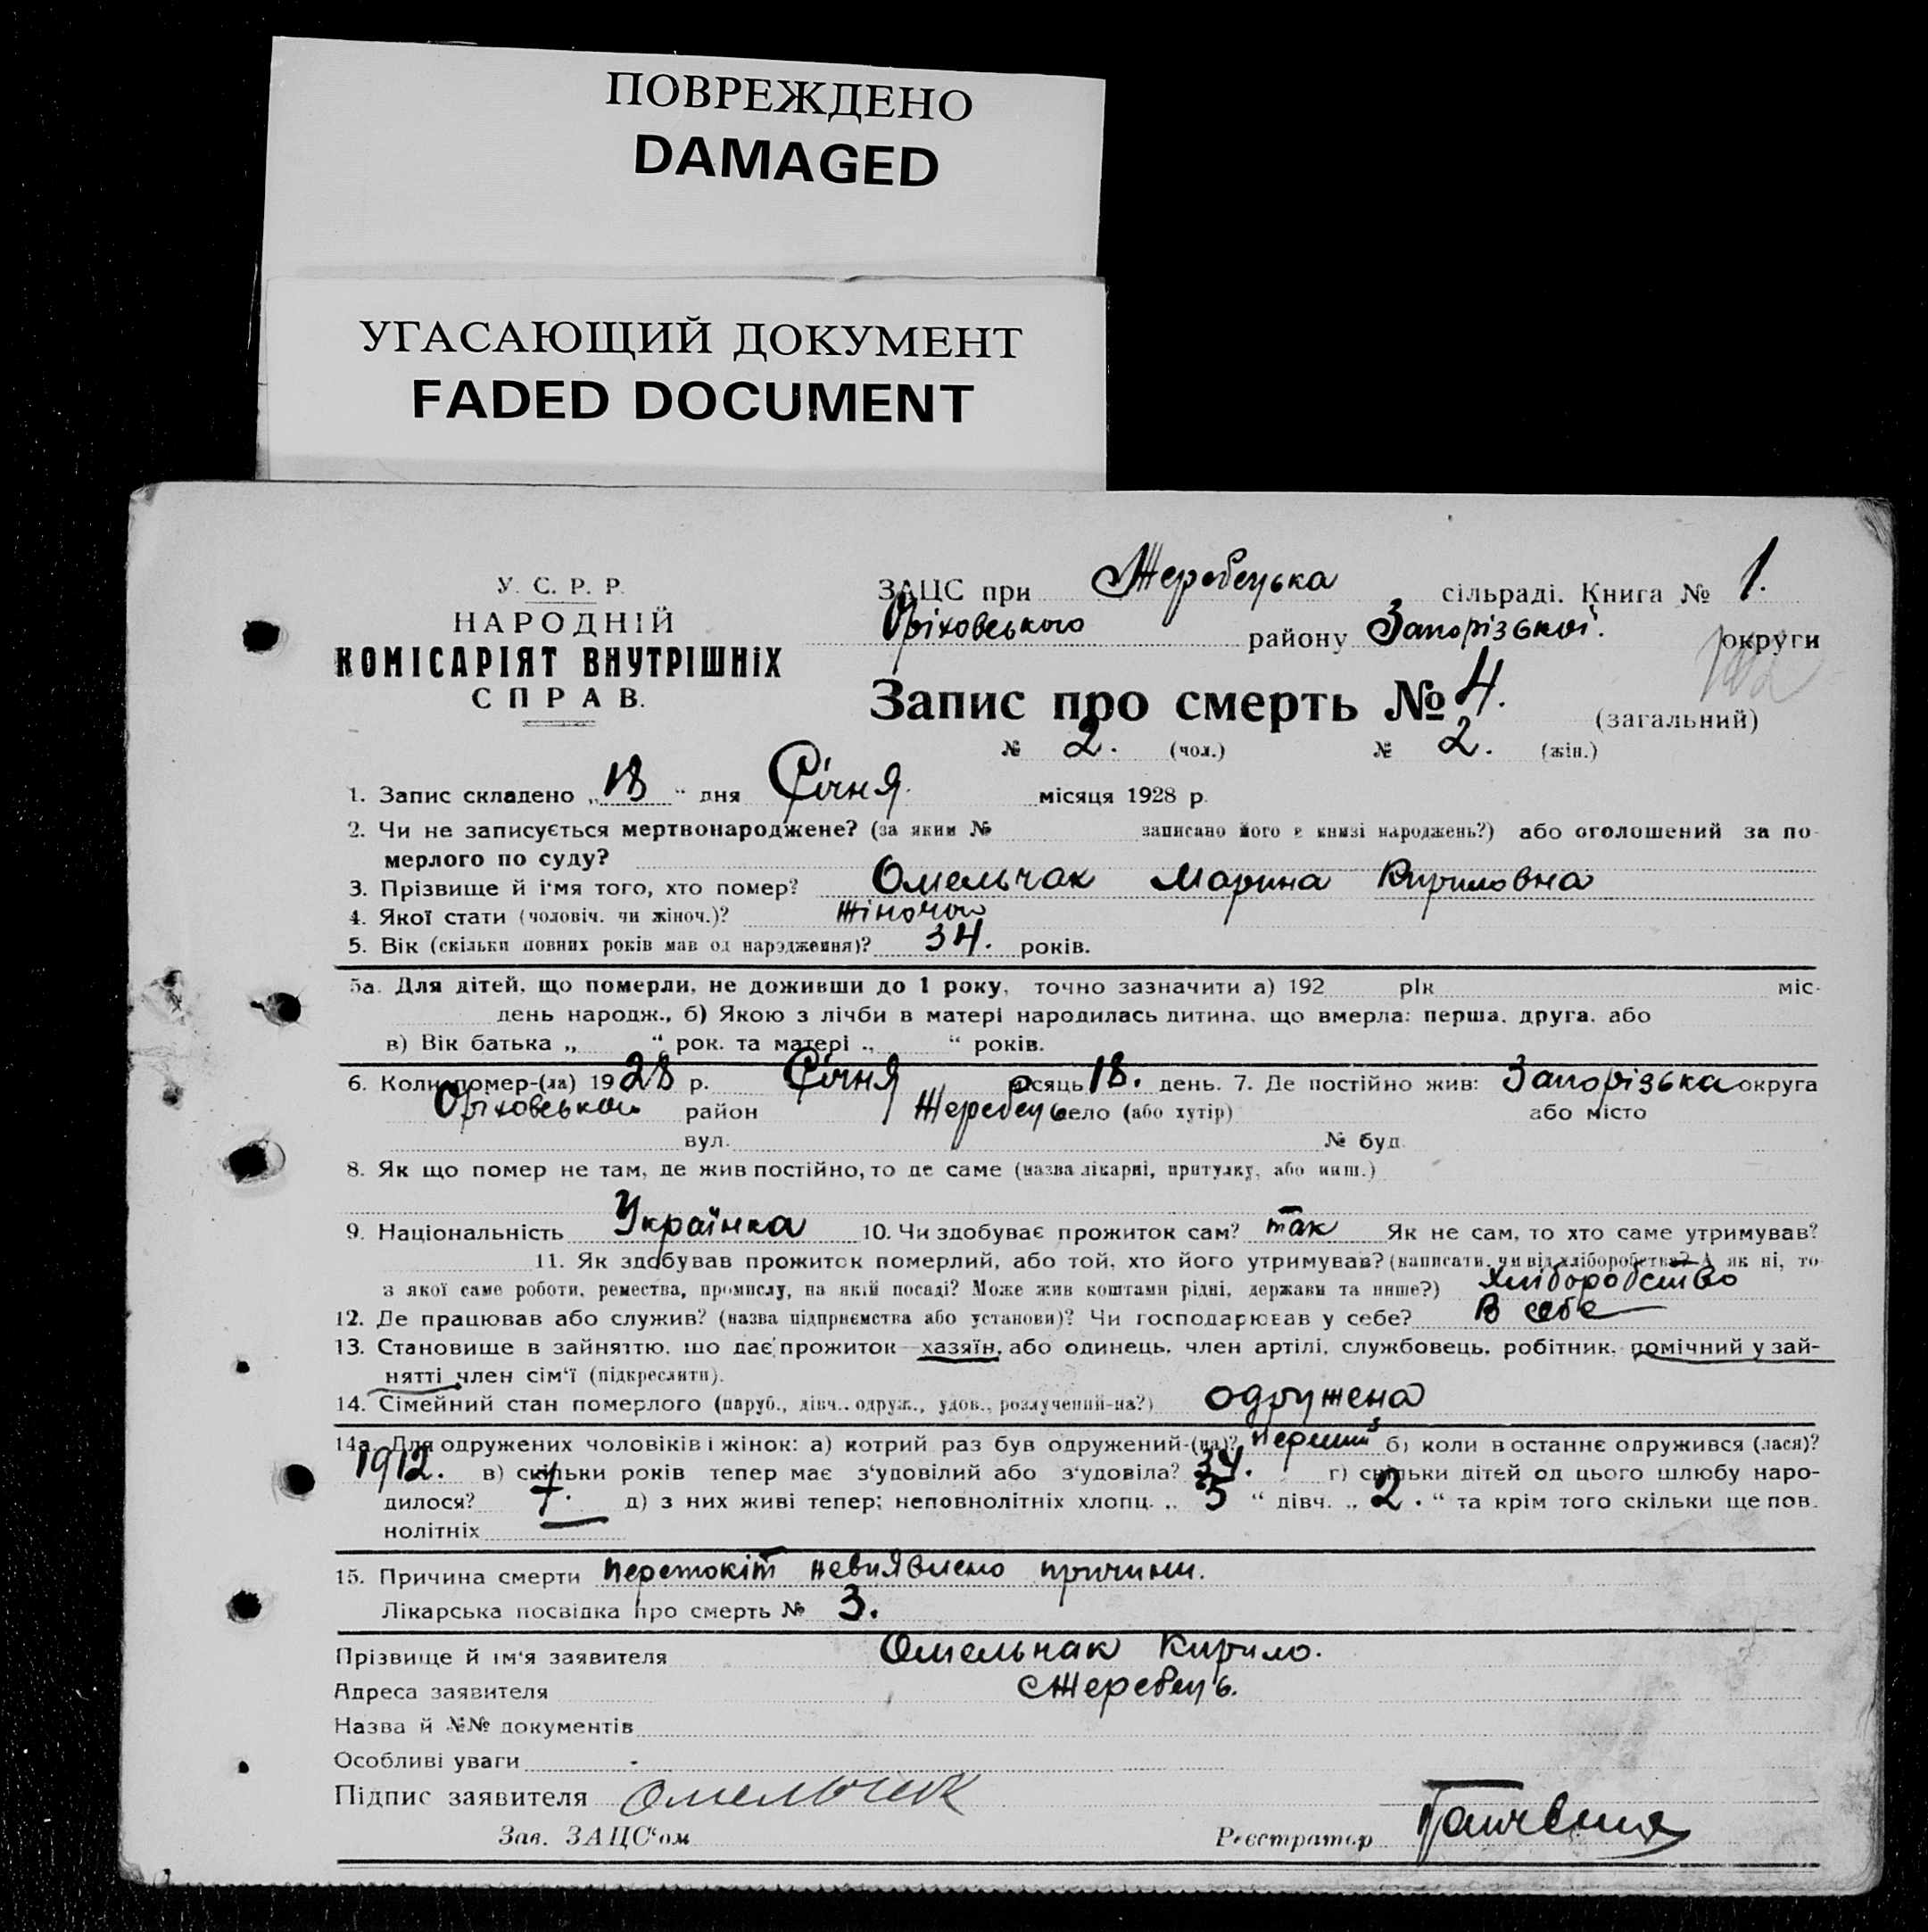 ПОВРЕЖДЕНО
DAMAGED
УГАСАЮЩИЙ ДОКУМЕНТ
FADED DOCUMENT
У. С. Р. Р.
НАРОДНІЙ
КОМІСАРІЯТ ВНУТРІШНІХ
СПРАВ.
ЗАЦС при Жеребецька сільраді. Книга № 1.
Оріховського району Запорізької. округи
Запис про смерть № 4. (загальний)
№ 2. (чол.) № 2. (жін.)
1. Запис складено „18“ дня Січня місяця 1928 р.
2. Чи не записується мертвонароджене? (за яким № записано його в книзі народжень?) або оголошений за по-
мерлого по суду?
3. Прізвище й ім'я того, хто помер? Омельчак Марина Кириловна
4. Якої стати (чоловіч. чи жіноч.)? жіночої
5. Вік (скільки повних років мав од народження)? 34. років.
5а. Для дітей, що померли, не доживши до 1 року, точно зазначити а) 192 рік міс-
день народж., б) Якою з лічби в матері народилась дитина, що вмерла: перша, друга, або
в) Вік батька „ “ рок. та матері „ “ років.
6. Коли помер-(ла) 1928 р. Січня місяць 18. день. 7. Де постійно жив: Запорізька округа
Оріховської район Жеребець село (або хутір) або місто
вул. № буд.
8. Як що помер не там, де жив постійно, то де саме (назва лікарні, притулку, або инш.)
9. Національність Українка 10. Чи здобуває прожиток сам? так Як не сам, то хто саме утримував?
11. Як здобував прожиток померлий, або той, хто його утримував? (написати, чи від хліборобства? А як ні, то
з якої саме роботи, ремества, промислу, на якій посаді? Може жив коштами рідні, держави та инше?) Хліборобство
12. Де працював або служив? (назва підприємства або установи)? Чи господарював у себе? В себе
13. Становище в зайняттю, що дає прожиток—хазяїн, або одинець, член артілі, службовець, робітник, помічний у зай-
нятті член сім'ї (підкреслити).
14. Сімейний стан померлого (паруб., дівч., одруж., удов., розлучений-на?) одружена
14а. Для одружених чоловіків і жінок: а) котрий раз був одружений-(на)? перший б) коли востаннє одружився (лася)?
1912. в) скільки років тепер має з'удовілий або з'удовіла? 34. г) скільки дітей од цього шлюбу наро-
дилося? 7. д) з них живі тепер; неповнолітніх хлопц. „ 5 “ дівч. „ 2. “ та крім того скільки ще пов.
нолітніх —
15. Причина смерти невиявлено причини.
Лікарська посвідка про смерть № 3.
Прізвище й ім'я заявителя Омельчак Кирило.
Адреса заявителя Жеребець.
Назва й №№ документів
Особливі уваги -
Підпис заявителя Омельчак
Зав. ЗАЦС'ом Реєстратор